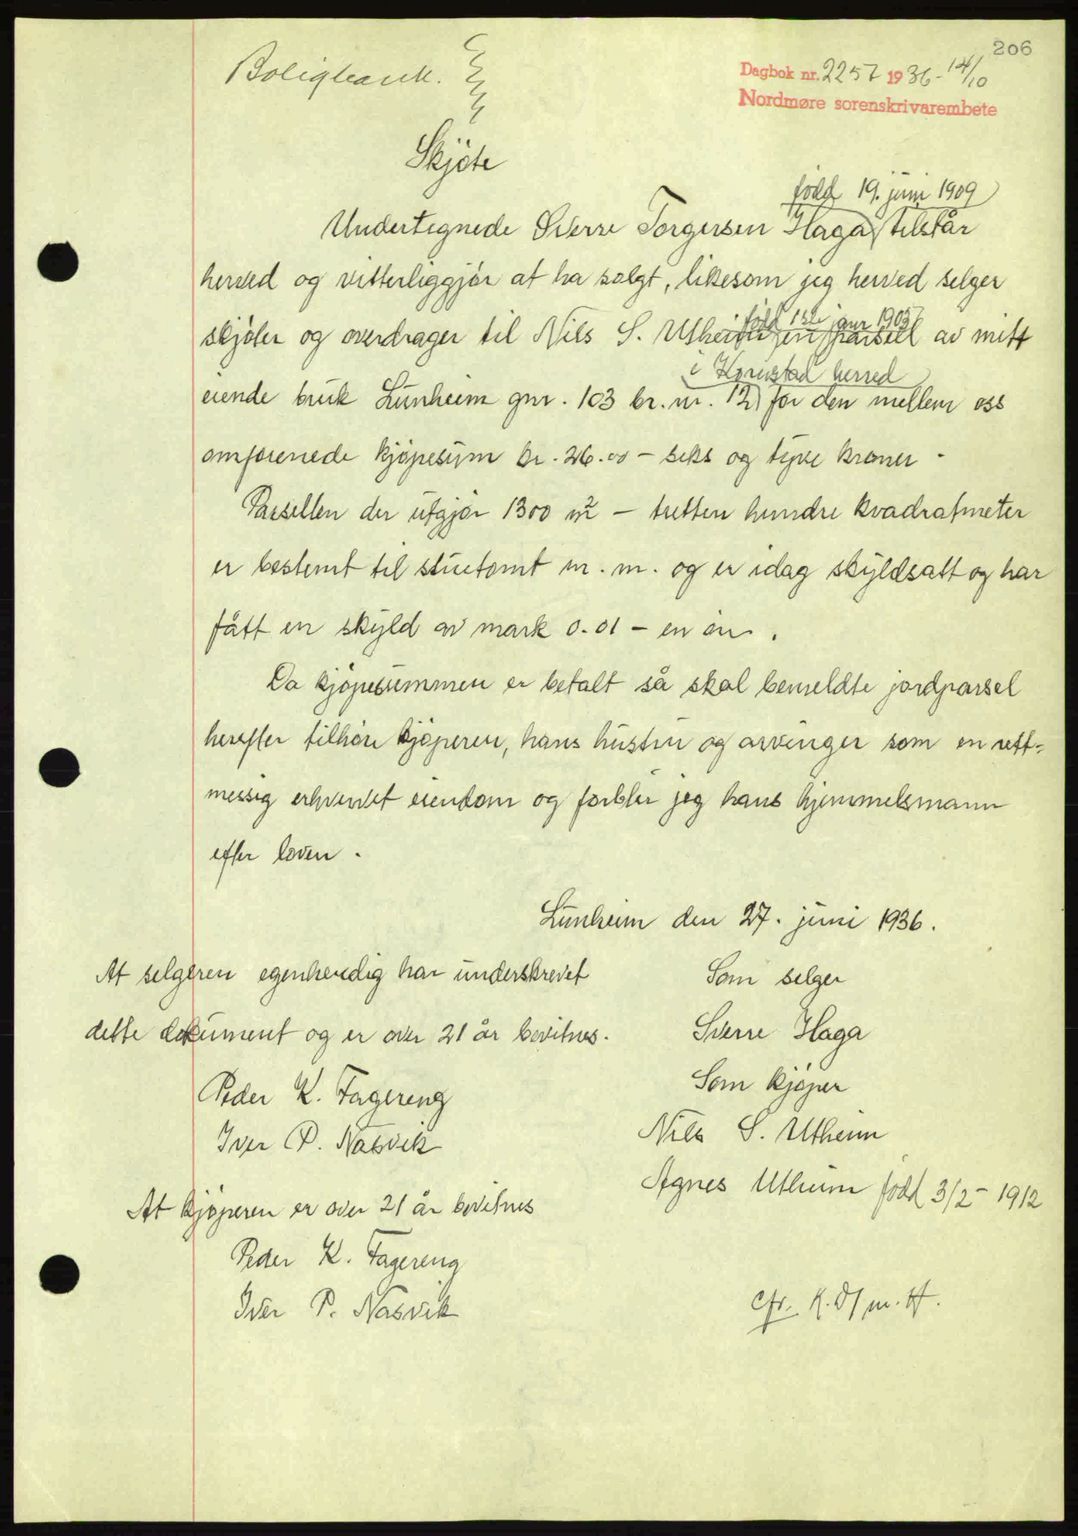 206
Boligbank.
Dagbok nr. 2257 1936 - 14/10
Nordmøre sorenskrivarembete
Skjøte
född 19. juni 1909
Undertegnede Sverre Torgersen Haga tilstår
herved og vitterliggjör at ha solgt, likesom jeg herved selger
född 1905
skjöter og overdrager til Nils S. Utheim en parsell av mitt
i Kornstad herred
eiende bruk Lunheim gnr. 103 br. nr. 12 for den mellem oss
omforenede kjöpesum kr. 26.00 - seks og tyve kroner -
Parsellen der utgjör 1300 m² - tretten hundre kvadratmeter
er bestemt til stuetomt m. m. og er idag skyldsatt og har
fått en skyld av mark 0.01 - en öre.
Da kjöpesummen er betalt så skal bemeldte jordparsel
herefter tilhöre kjöperen, hans hustru og arvinger som en rett=
messig erhvervet eiendom og forblir jeg hans hjemmelsmann
efter loven.
Lunheim den 27. juni 1936.
At selgeren egenhendig har underskrevet
dette dokument og er over 21 år bevitnes.
Peder K. Fagereng
Iver P. Nasvik
At kjöperen er over 21 år bevitnes
Peder K. Fagereng
Iver P. Nasvik
Som selger
Sverre Haga
Som kjöper
Nils S. Utheim
Agnes Utheim född 3/2 - 1912
cfr.